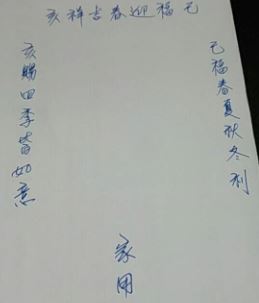 己福迎春吉祥亥
己福春夏秋冬利
亥赐四季皆如意
家用